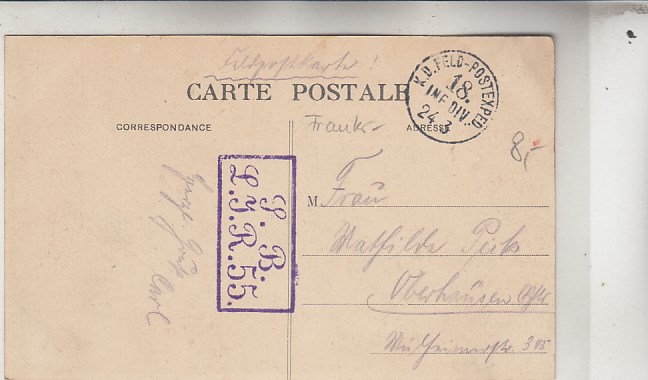 Feldpostkarte!
CARTE POSTALE
K.D. FELD-POSTEXPED.
18.
INF. DIV.
24.3
CORRESPONDANCE
Frankr.
ADRESSE
8,-
S. B.
L.J.R.55.
Herzl. Gruß
Carl
M. Frau
Mathilde Pick
Oberhausen
Mülheimerstr. 305